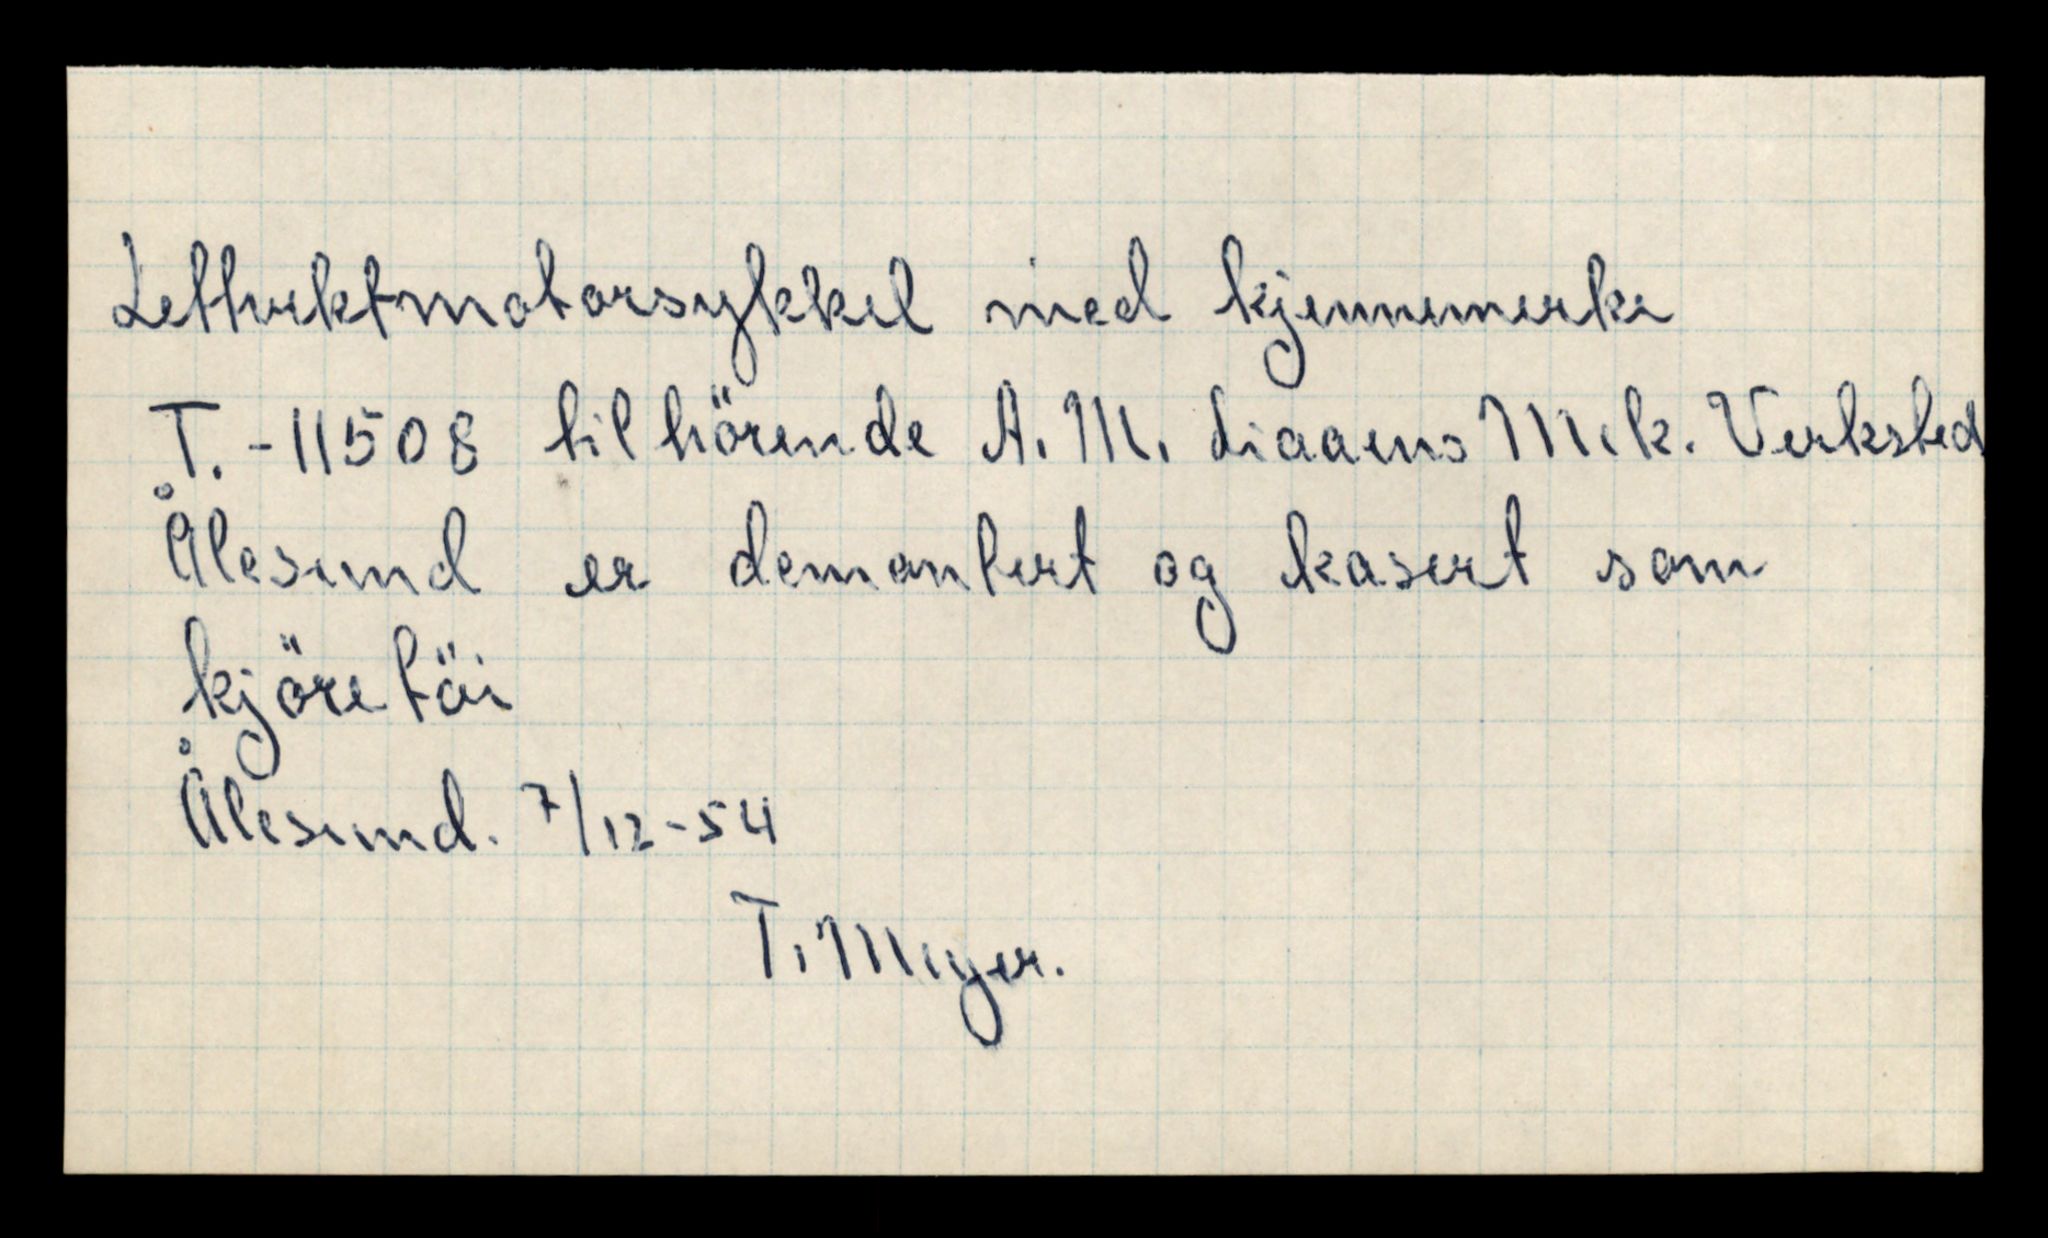 Lettvektmotorsykkel med kjennemerke
T.-11508 tilhörende A.M. Liaaens Mek. Verksted
Ålesund er demontert og kasert som
kjöretöi
Ålesund. 7/12-54
T. Meyer.